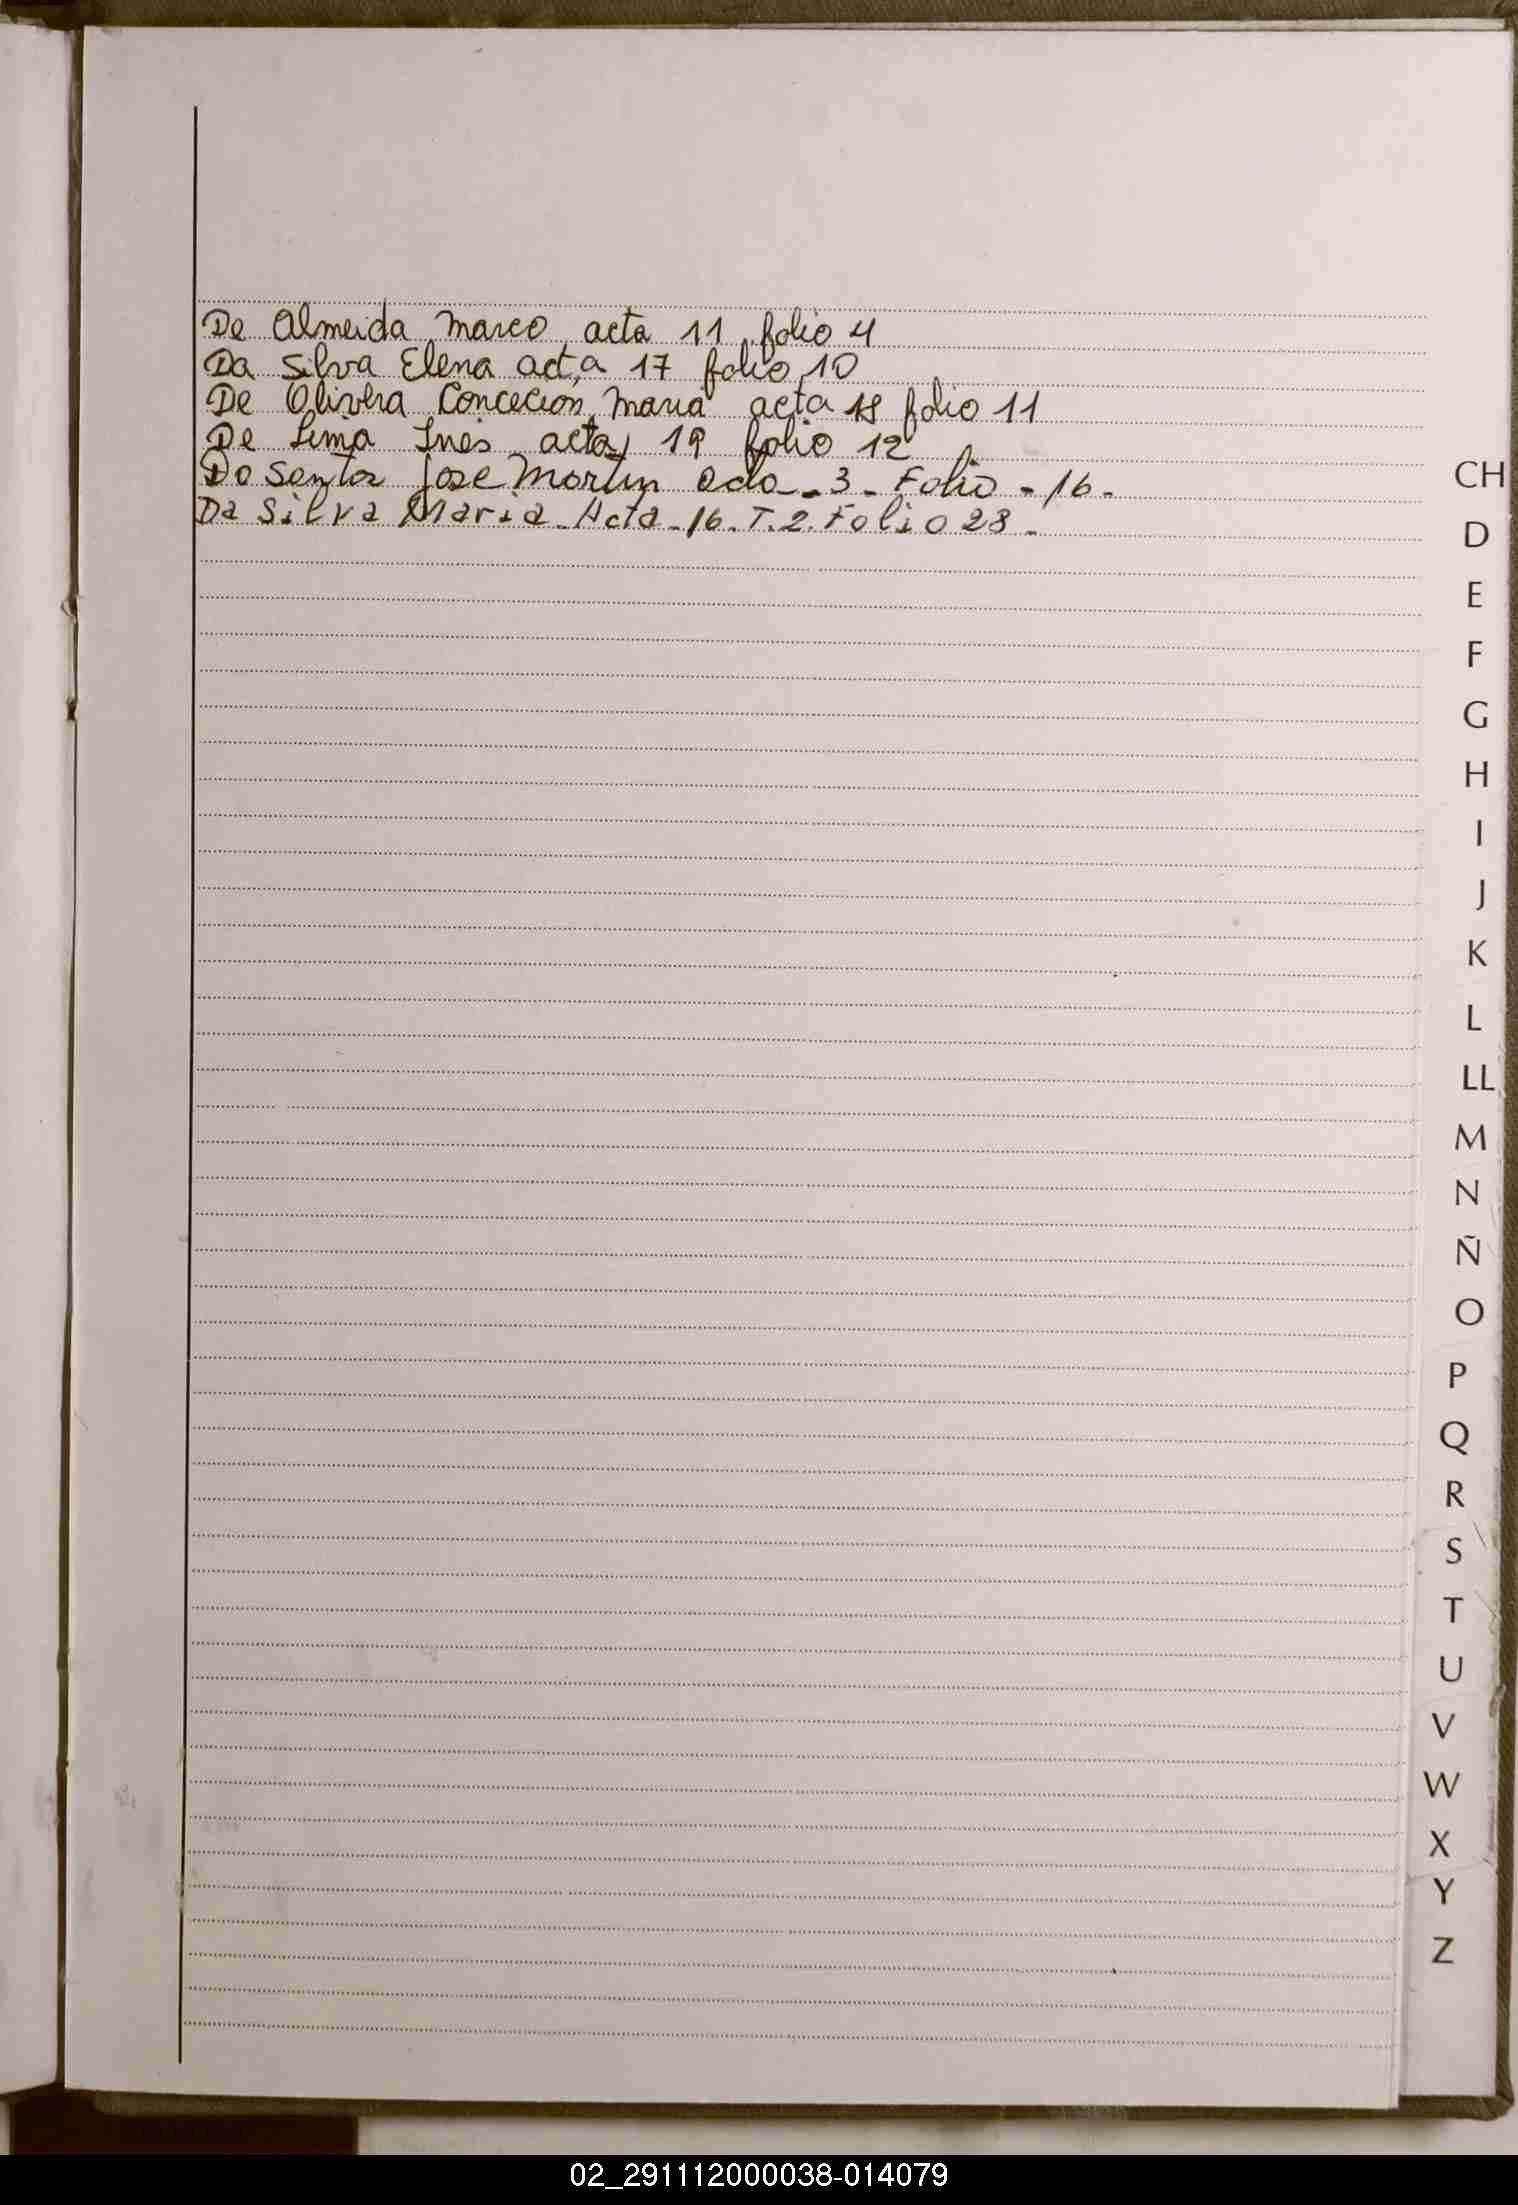 De Almeida Marco acta 11 folio 4
Da Silva Elena acta 17 folio 10
De Olivera Concecion Maria acta 18 folio 11
De Lima Ines acta 19 folio 12
Do Santos Jose Martin Acta - 3 - Folio - 16 -
Da Silva Maria - Acta - 16 - T. 2. Folio 28 -
CH
D
E
F
G
H
I
J
K
L
LL
M
N
Ñ
O
P
Q
R
S
T
U
V
W
X
Y
Z
02_291112000038-014079